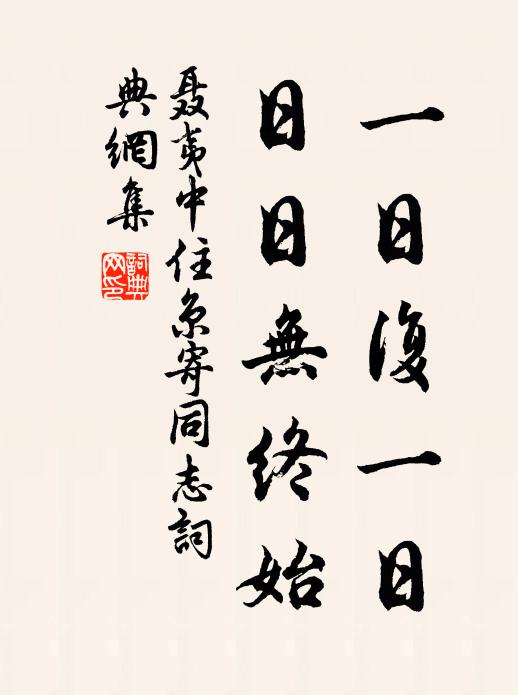 一日復一日
日日無終始
聂夷中住京寄同志詞
典網集
詞典網印